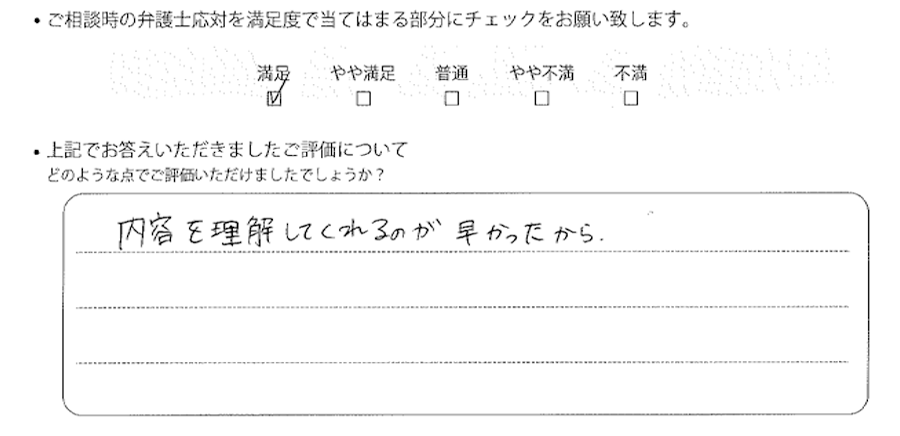 ・ご相談時の弁護士応対を満足度で当てはまる部分にチェックをお願い致します。
満足 やや満足 普通 やや不満 不満
☑ □ □ □ □
・上記でお答えいただきましたご評価について
どのような点でご評価いただけましたでしょうか？
内容を理解してくれるのが早かったから.